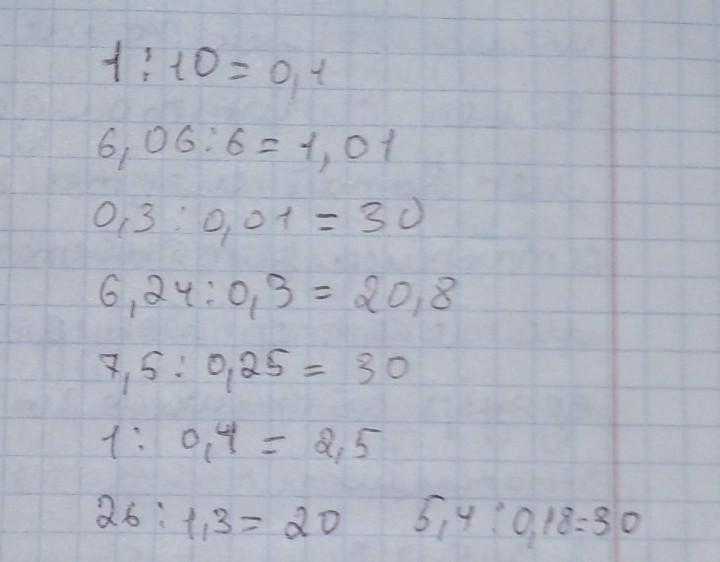 1:10=0,1
6,06:6=1,01
0,3:0,01=30
6,24:0,3=20,8
7,5:0,25=30
1:0,4=2,5
26:1,3=20 5,4:0,18=30